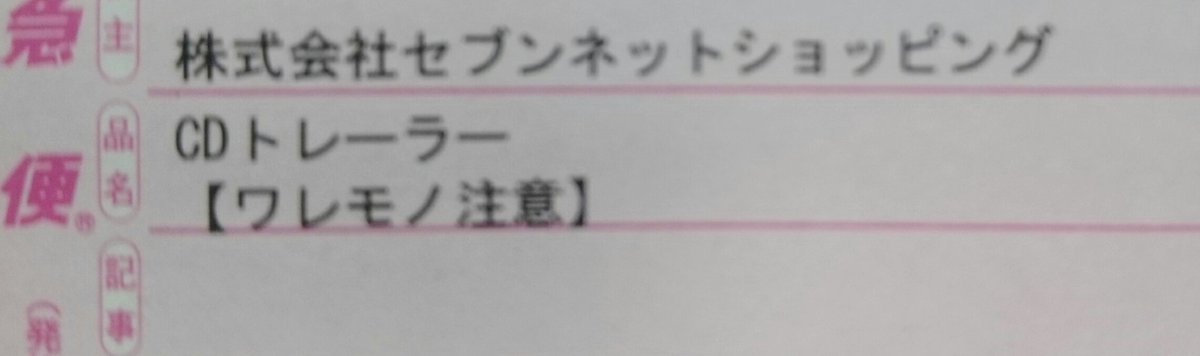 急
便®
(発
主
株式会社セブンネットショッピング
品名
CDトレーラー
【ワレモノ注意】
記事